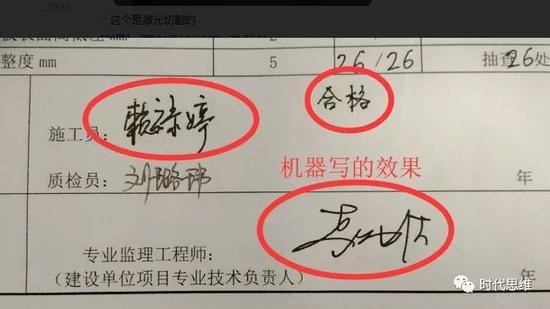 20:11
这个是激光切割的
整度 mm 5 26/26 抽查26处
合格
施工员：赖禄婷
机器写的效果
质检员：刘璐玮 年
专业监理工程师：
（建设单位项目专业技术负责人） 年
时代思维